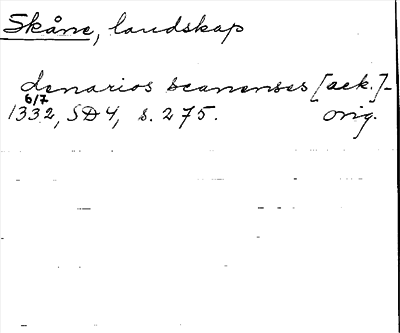 Skåne, landskap
denarios scanenses [ack.]-
6/7
1332, SD4, s. 275. orig.